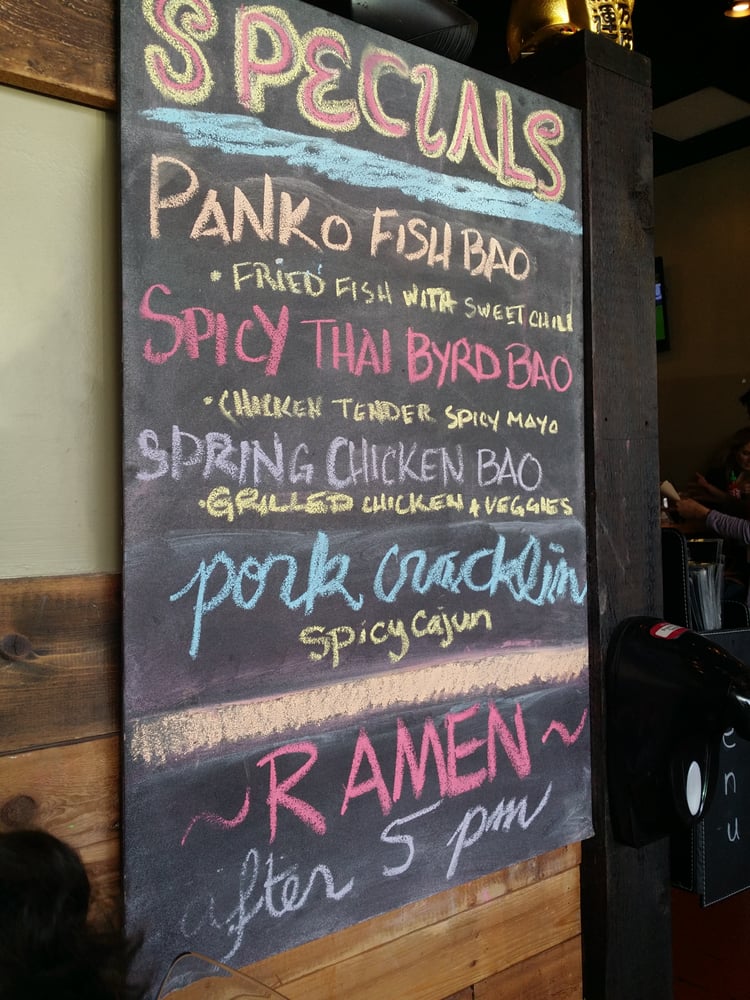 SPECIALS
PANKO FISH BAO
• FRIED FISH WITH SWEET CHILI
SPICY THAI BYRD BAO
• CHICKEN TENDER SPICY MAYO
SPRING CHICKEN BAO
• GRILLED CHICKEN & VEGGIES
pork cracklin
spicy cajun
~RAMEN~
after 5 pm
enu